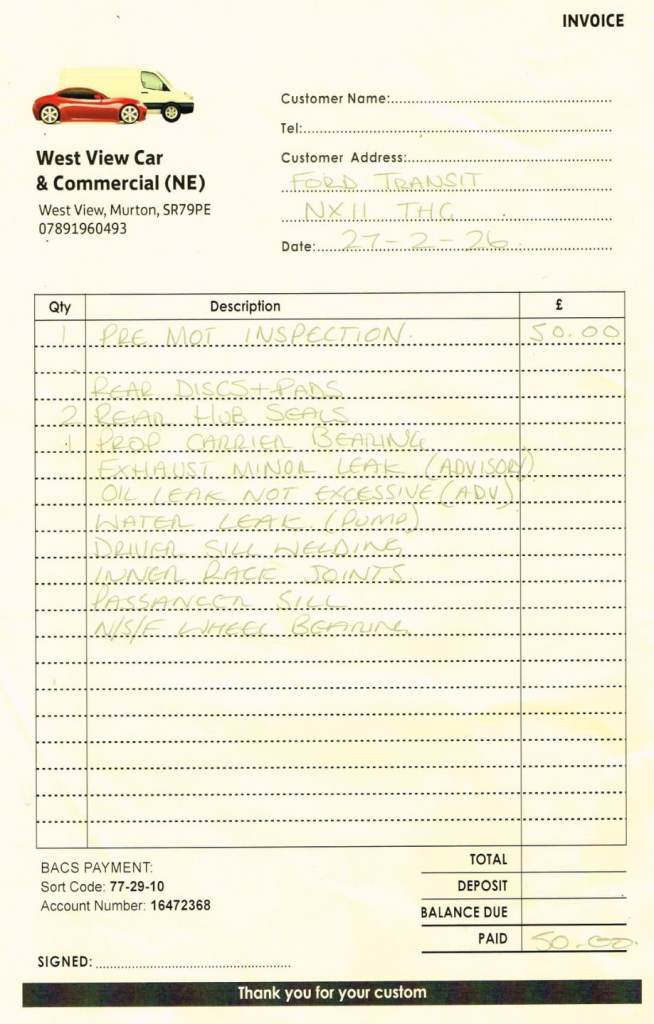 INVOICE
West View Car
& Commercial (NE)
West View, Murton, SR79PE
07891960493
Customer Name:
Tel:
Customer Address:
FORD TRANSIT
NX11 THG
Date: 27-2-26
Qty Description £
1 PRE MOT INSPECTION. 50.00
REAR DISCS+PADS
2 REAR HUB SEALS
1 PROP CARRIER BEARING
EXHAUST MINOR LEAK (ADVISORY)
OIL LEAK NOT EXCESSIVE (ADV)
WATER LEAK (PUMP)
DRIVER SILL WELDING
INNER RACE JOINTS
PASSANGER SILL
N/S/F WHEEL BEARING
BACS PAYMENT:
Sort Code: 77-29-10
Account Number: 16472368
TOTAL
DEPOSIT
BALANCE DUE
PAID 50.00
SIGNED:
Thank you for your custom